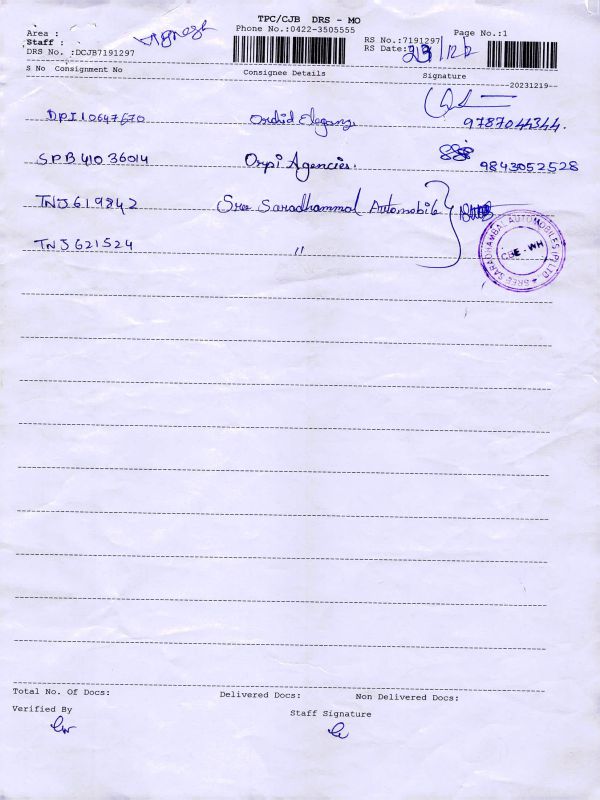 TPC/CJB DRS - MO
Area :
Vignesh
Phone No.:0422-3505555
RS No.:7191297
Page No.:1
Staff :
RS Date: 23/12/2
DRS No. :DCJB7191297
S No Consignment No
Consignee Details
Signature
--20231219--
DPI10647670
Orchid Eleganz
9787044344.
SPB41036014
Orpi Agencies.
9843052528
TNJ619842
Sree Saradhammal Automobile
TNJ621524
"
SREE SARADHAMBAL AUTOMOBILES (P) LTD.
CBE - WH
Total No. Of Docs:
Delivered Docs:
Non Delivered Docs:
Verified By
Staff Signature